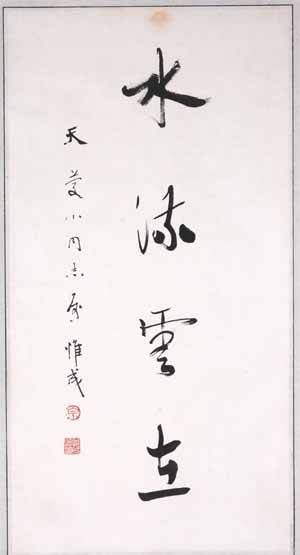 水流雲在
天小同志属 惟成